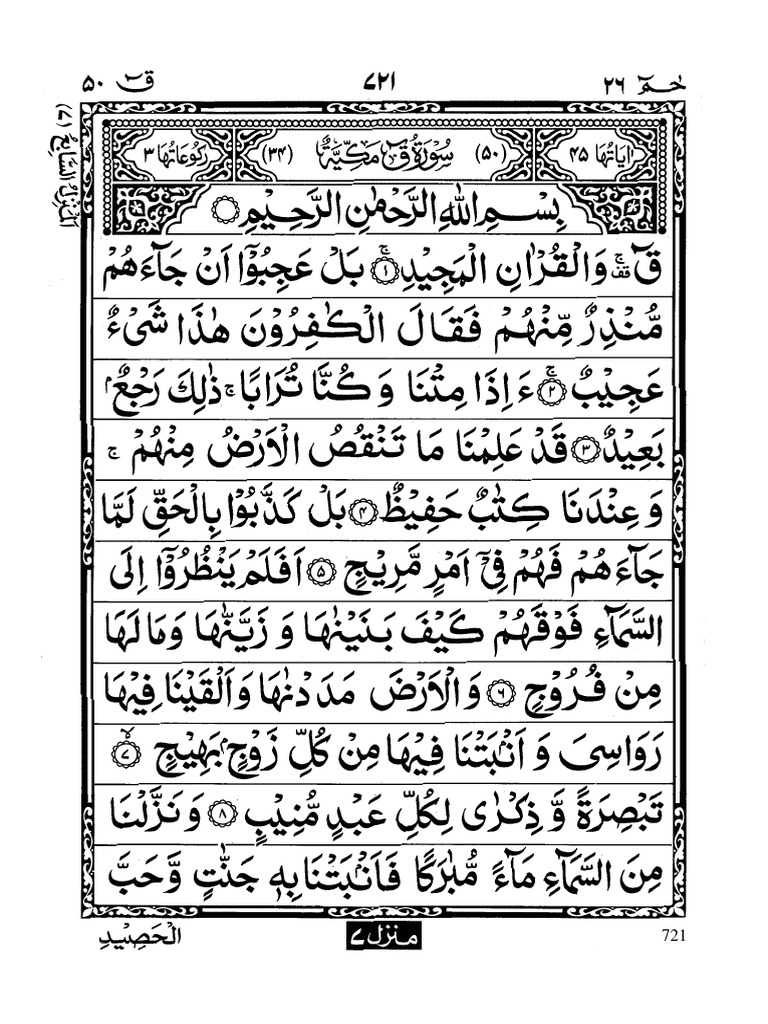 حٰمٓ ۲۶
۷۲۱
قٓ ۵۰
اَلْمَنْزِلُ السَّابِعُ (۷)
اٰيَاتُهَا ۴۵
(۵۰) سُوْرَةُ قٓ مَكِّيَّةٌ (۳۴)
رُكُوْعَاتُهَا ۳
بِسْمِ اللّٰهِ الرَّحْمٰنِ الرَّحِيْمِ ۝
قٓ ۚ قف وَالْقُرْاٰنِ الْمَجِيْدِ ۚ‏﴿۱﴾ بَلْ عَجِبُوْۤا اَنْ جَآءَهُمْ
مُّنْذِرٌ مِّنْهُمْ فَقَالَ الْكٰفِرُوْنَ هٰذَا شَىْءٌ
عَجِيْبٌ ۚ‏﴿۲﴾ ءَاِذَا مِتْنَا وَكُنَّا تُرَابًا ۚ ذٰلِكَ رَجْعٌۢ
بَعِيْدٌ ﴿۳﴾ قَدْ عَلِمْنَا مَا تَنْقُصُ الْاَرْضُ مِنْهُمْ ۚ
وَعِنْدَنَا كِتٰبٌ حَفِيْظٌ ﴿۴﴾ بَلْ كَذَّبُوْا بِالْحَقِّ لَمَّا
جَآءَهُمْ فَهُمْ فِىْۤ اَمْرٍ مَّرِيْجٍ ﴿۵﴾ اَفَلَمْ يَنْظُرُوْۤا اِلَى
السَّمَآءِ فَوْقَهُمْ كَيْفَ بَنَيْنٰهَا وَزَيَّنّٰهَا وَمَا لَهَا
مِنْ فُرُوْجٍ ﴿۶﴾ وَالْاَرْضَ مَدَدْنٰهَا وَاَلْقَيْنَا فِيْهَا
رَوَاسِىَ وَاَنْۢبَتْنَا فِيْهَا مِنْ كُلِّ زَوْجٍۢ بَهِيْجٍ ۙ‏﴿۷﴾
تَبْصِرَةً وَّذِكْرٰى لِكُلِّ عَبْدٍ مُّنِيْبٍ ﴿۸﴾ وَنَزَّلْنَا
مِنَ السَّمَآءِ مَآءً مُّبٰرَكًا فَاَنْۢبَتْنَا بِهٖ جَنّٰتٍ وَّحَبَّ
الْحَصِيْدِ
منزل ۷
721